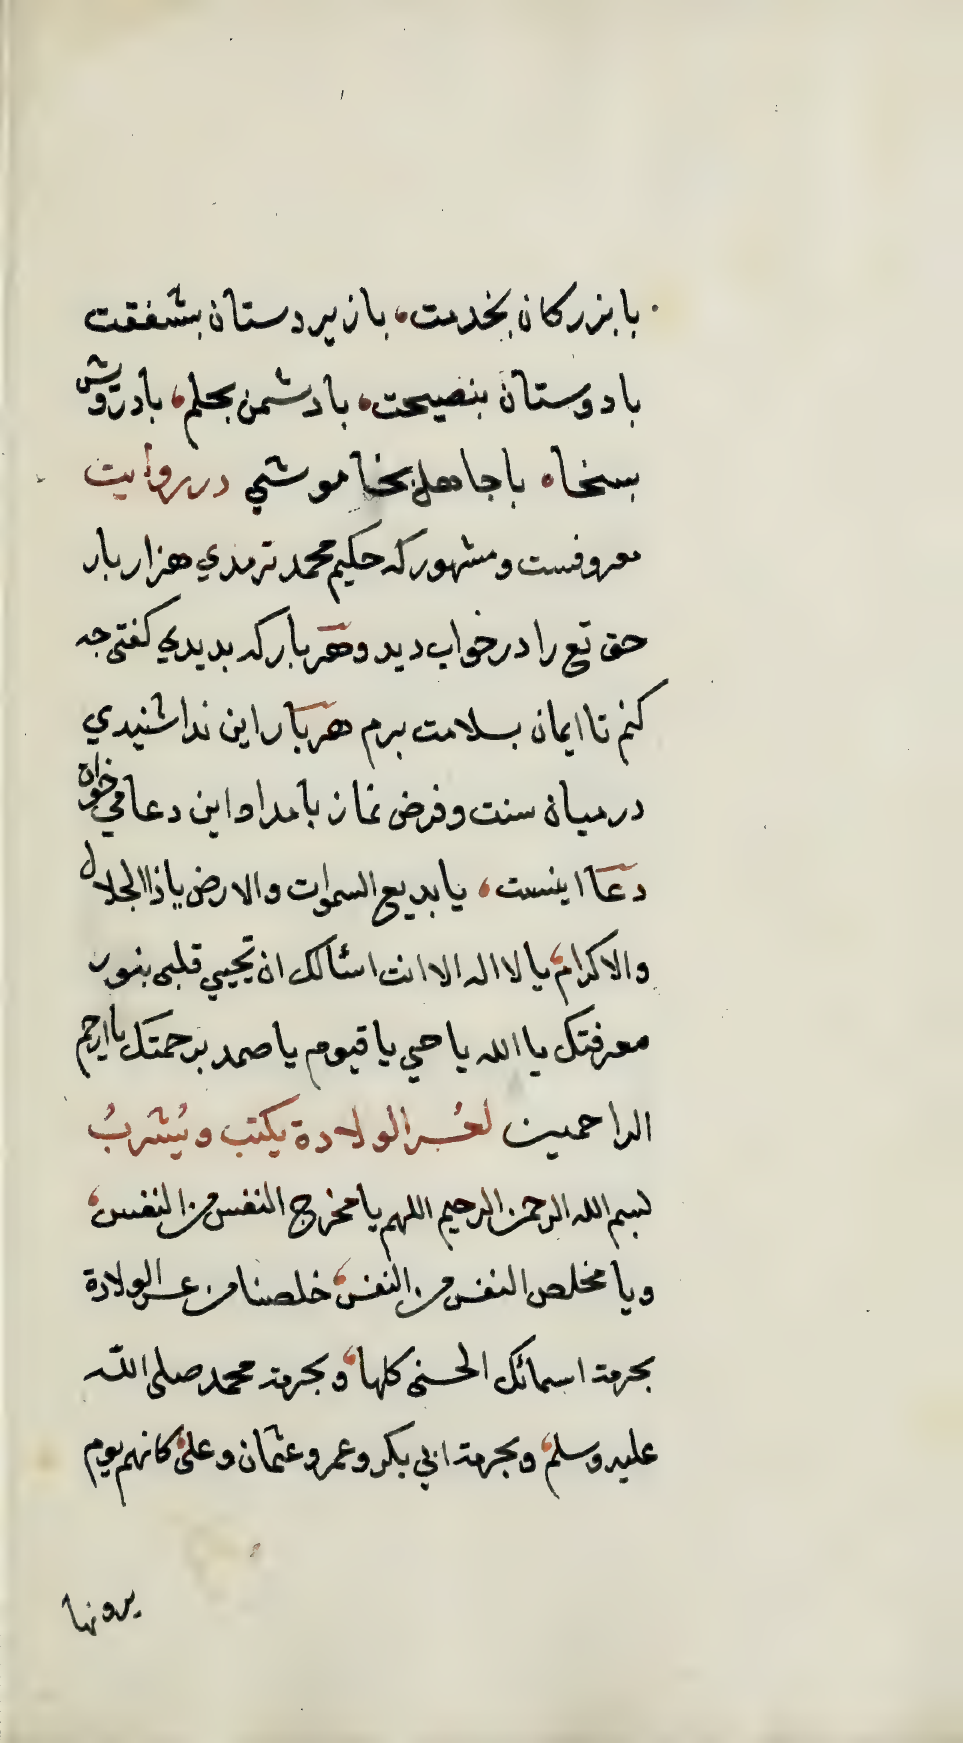 با بزركان بخدمت، با زير دستان بشفقت
با دوستان بنصيحت، با دشمن بحلم، با دروش
بسخاه با جاهل بخاموشي در روايت
معروفست و مشهور كه حكيم محمد ترمذي هزار بار
حق تع را در خواب ديد و هر بار كه بديدي كفتى جه
كنم تا ايمان بسلامت برم هر بار اين ندا شنيدي
در ميان سنت و فرض نماز بامداد اين دعا مي خوان
دعا اينست، يا بديع السموات والارض ياذا الجلال
والاكرام، يا لا اله الا انت اسئالك ان تحيي قلبى بنور
معرفتك يا الله يا حي يا قيوم يا صمد برحمتك يا ارحم
الراحمين لعُسر الولادة يكتب ويُشربُ
لبسم الله الرحمن الرحيم اللهم يا مخرج النفس من النفس،
ويا مخلص النفس من النفس، خلصنا من عسر الولادة
بحرمة اسمائك الحسنى كلها، وبحرمة محمد صلى الله
عليه وسلم، وبحرمة ابي بكر وعمر وعثمان وعلى، كانهم يوم
يرونها